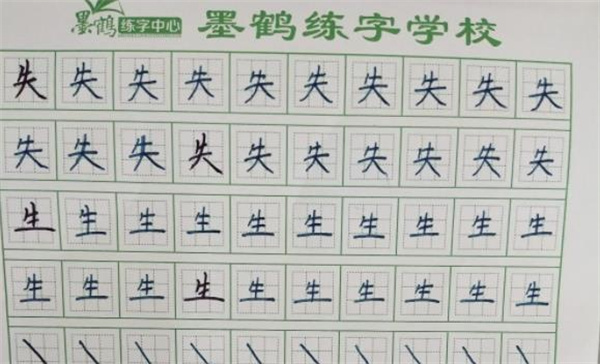 墨鹤练字中心 墨鹤练字学校
失失失失失失失失失失
失失失失失失失失失失
生生生生生生生生生生
生生生生生生生生生生